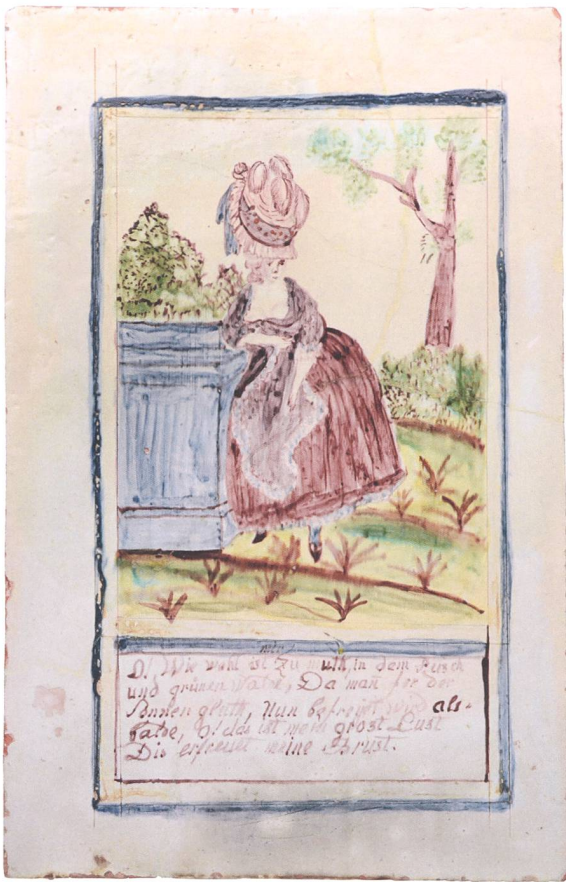 mir
O! Wie wohl ist zu muth, in dem Pusch
und grünen Walde, Da man for der
Sonnen gluth, Nun befreyet wird als-
balde, O! das ist mein grost Lust
Die erfreuet meine Brust.